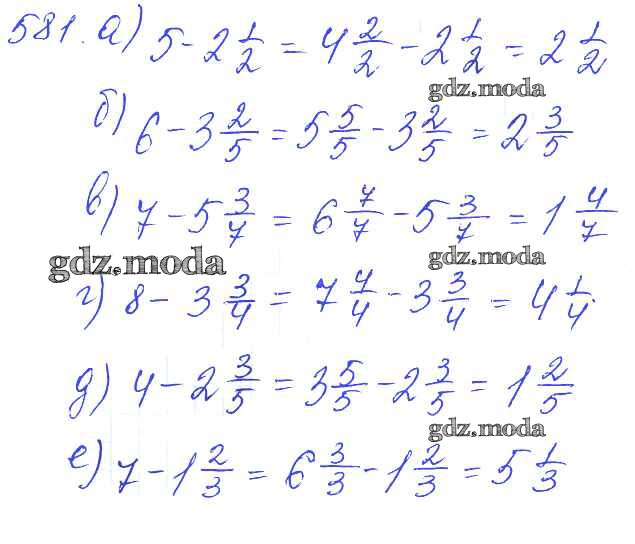 581. а) 5 - 2 1/2 = 4 2/2 - 2 1/2 = 2 1/2
gdz.moda
б) 6 - 3 2/5 = 5 5/5 - 3 2/5 = 2 3/5
в) 7 - 5 3/7 = 6 7/7 - 5 3/7 = 1 4/7
gdz.moda
gdz.moda
г) 8 - 3 3/4 = 7 4/4 - 3 3/4 = 4 1/4.
д) 4 - 2 3/5 = 3 5/5 - 2 3/5 = 1 2/5
gdz.moda
е) 7 - 1 2/3 = 6 3/3 - 1 2/3 = 5 1/3